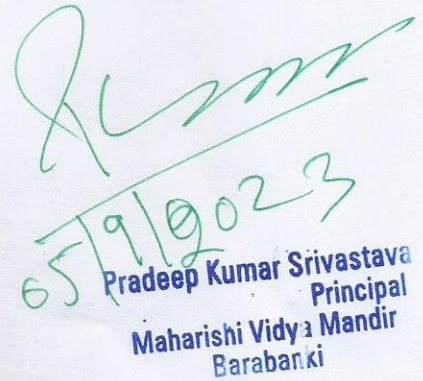 05/9/2023
Pradeep Kumar Srivastava
Principal
Maharishi Vidya Mandir
Barabanki